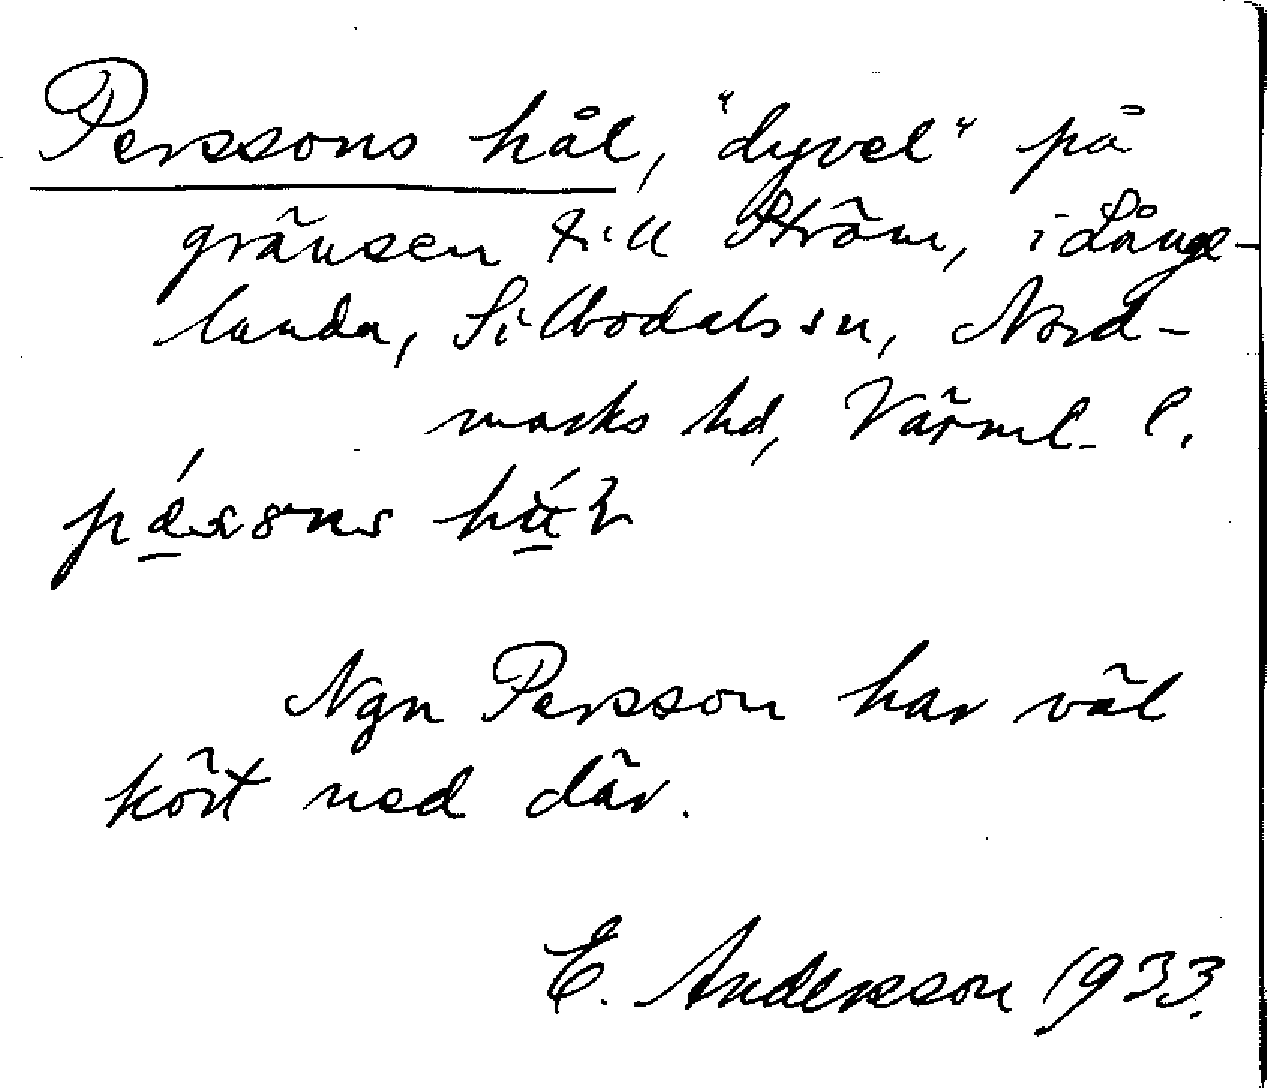 Perssons hål, "dyvel" på
gränsen till Ström, i Långe-
landa, Silbodals sn, Nord-
marks hd, Värml. l.
Ngn Persson har väl
kört ned där.
E. Andersson 1933.